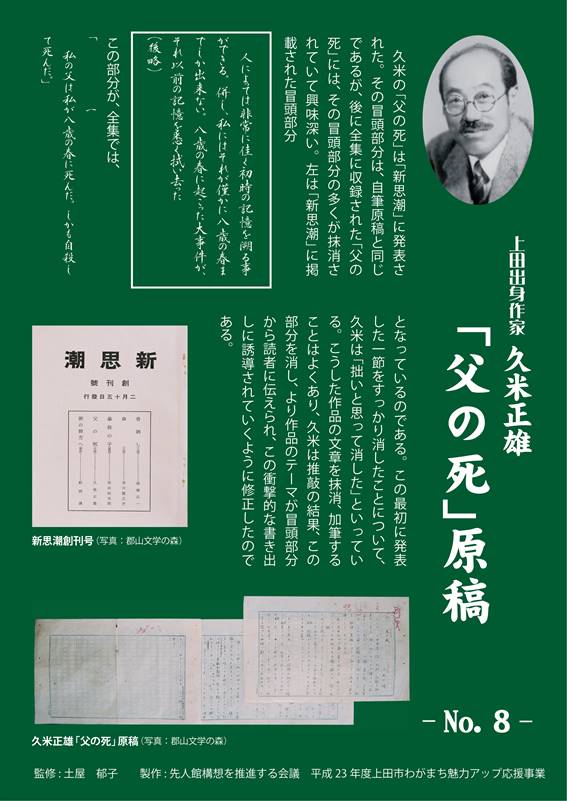 上田出身作家 久米正雄
「父の死」原稿
－No. 8－
久米の「父の死」は「新思潮」に発表さ
れた。その冒頭部分は、自筆原稿と同じ
であるが、後に全集に収録された「父の
死」には、その冒頭部分の多くが抹消さ
れていて興味深い。左は「新思潮」に掲
載された冒頭部分
人によっては非常に佳く初時の記憶を溯る事
ができる。併し、私にはそれが僅かに八歳の春ま
でしか出来ない。八歳の春に起こった大事件が、
それ以前の記憶を悉く拭い去った
(後略)
この部分が、全集では、
「　　　　　(
私の父は私が八歳の春に死んだ。しかも自殺し
て死んだ。」
となっているのである。この最初に発表
した一節をすっかり消したことについて、
久米は「拙いと思って消した」といってい
る。こうした作品の文章を抹消、加筆する
ことはよくあり、久米は推敲の結果、この
部分を消し、より作品のテーマが冒頭部分
から読者に伝えられ、この衝撃的な書き出
しに誘導されていくように修正したので
ある。
新思潮
創刊號
二月十五日發行
父の死
新思潮創刊号(写真:郡山文学の森)
久米正雄「父の死」原稿(写真:郡山文学の森)
監修:土屋 郁子 製作:先人館構想を推進する会議 平成23年度上田市わがまち魅力アップ応援事業